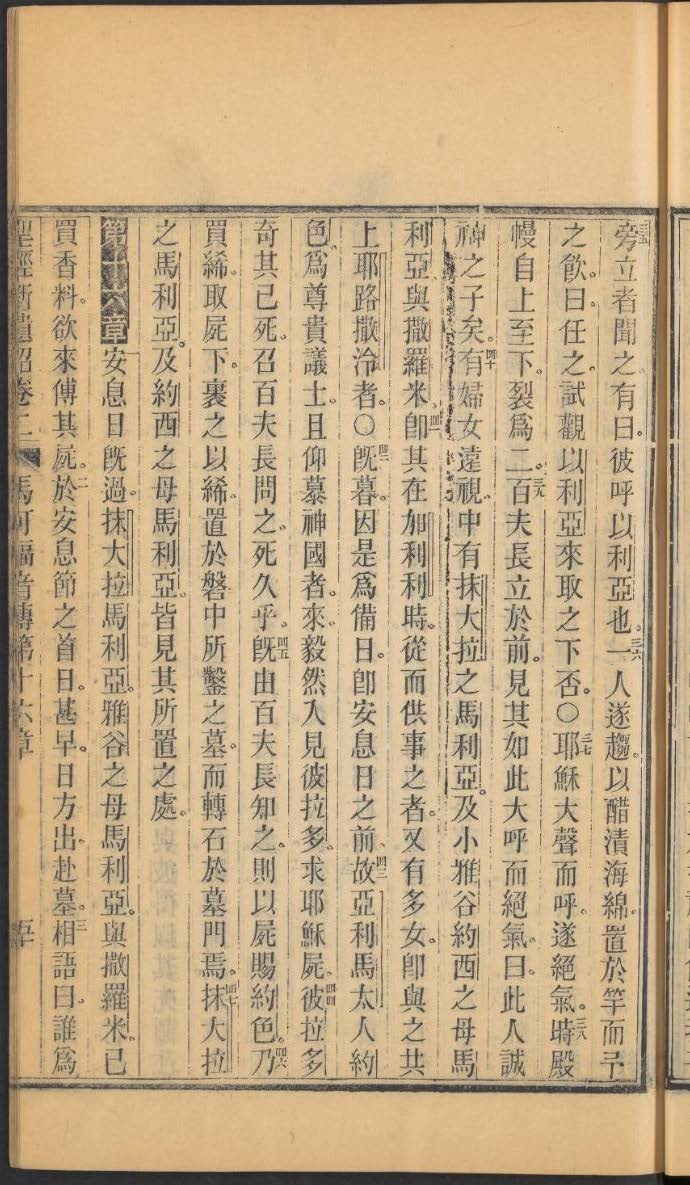 三五旁立者聞之有曰彼呼以利亞也三六一人遂趨以醋漬海綿置於竿而予
之飲曰任之試觀以利亞來取之下否〇三七耶穌大聲而呼遂絕氣三八時殿
幔自上至下裂爲二三九百夫長立於前見其如此大呼而絕氣曰此人誠
神之子矣四十有婦女遠視中有抹大拉之馬利亞及小雅谷約西之母馬
利亞與撒羅米四一卽其在加利利時從而供事之者又有多女卽與之共
上耶路撒冷者〇四二旣暮因是爲備日卽安息日之前四三故亞利馬太人約
色爲尊貴議士且仰慕神國者來毅然入見彼拉多求耶穌屍四四彼拉多
奇其已死召百夫長問之死久乎四五旣由百夫長知之則以屍賜約色四六乃
買絺取屍下裹之以絺置於磐中所鑿之墓而轉石於墓門焉四七抹大拉
之馬利亞及約西之母馬利亞皆見其所置之處
第十六章安息日旣過抹大拉馬利亞雅谷之母馬利亞與撒羅米已
買香料欲來傅其屍二於安息節之首日甚早日方出赴墓三相語曰誰爲
聖經新遺詔卷二 馬可福音傳第十六章